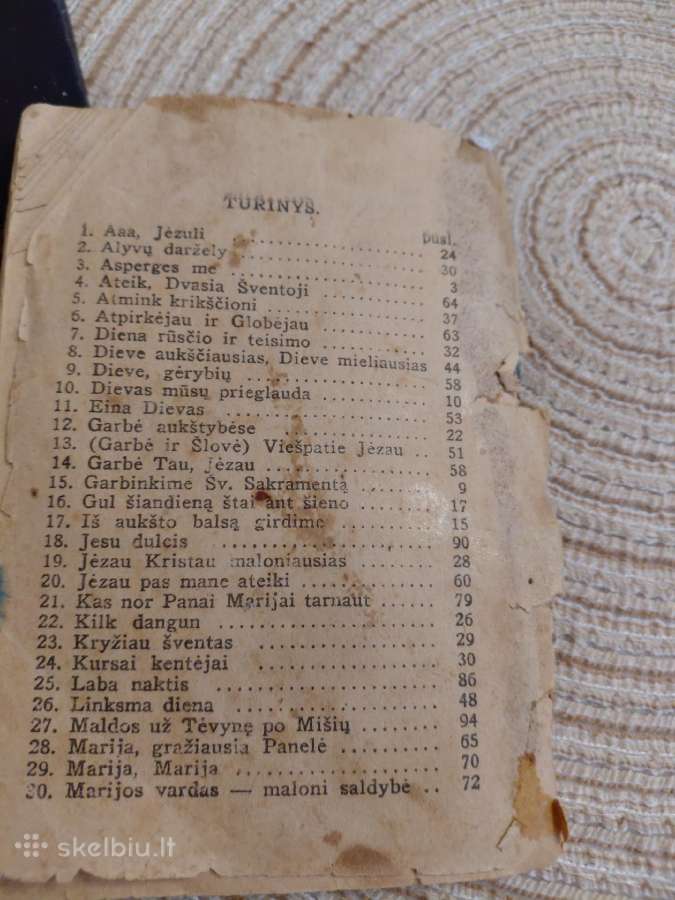 TURINYS.
pusl.
1. Aaa, Jėzuli ........ 24
2. Alyvų daržely ........ 30
3. Asperges me ........ 3
4. Ateik, Dvasia Šventoji ........ 64
5. Atmink krikščioni ........ 37
6. Atpirkėjau ir Globėjau ........ 63
7. Diena rūsčio ir teisimo ........ 32
8. Dieve aukščiausias, Dieve mieliausias 44
9. Dieve, gėrybių ........ 58
10. Dievas mūsų prieglauda ........ 10
11. Eina Dievas ........ 53
12. Garbė aukštybėse ........ 22
13. (Garbė ir Šlovė) Viešpatie Jėzau .. 51
14. Garbė Tau, Jėzau ........ 58
15. Garbinkime Šv. Sakramentą ........ 9
16. Gul šiandieną štai ant šieno ........ 17
17. Iš aukšto balsą girdime ........ 15
18. Jesu dulcis ........ 90
19. Jėzau Kristau maloniausias ........ 28
20. Jėzau pas mane ateiki ........ 60
21. Kas nor Panai Marijai tarnaut ...... 79
22. Kilk dangun ........ 26
23. Kryžiau šventas ........ 29
24. Kursai kentėjai ........ 30
25. Laba naktis ........ 86
26. Linksma diena ........ 48
27. Maldos už Tėvynę po Mišių ........ 94
28. Marija, gražiausia Panelė ........ 65
29. Marija, Marija ........ 70
30. Marijos vardas — maloni saldybė .. 72
skelbiu.lt